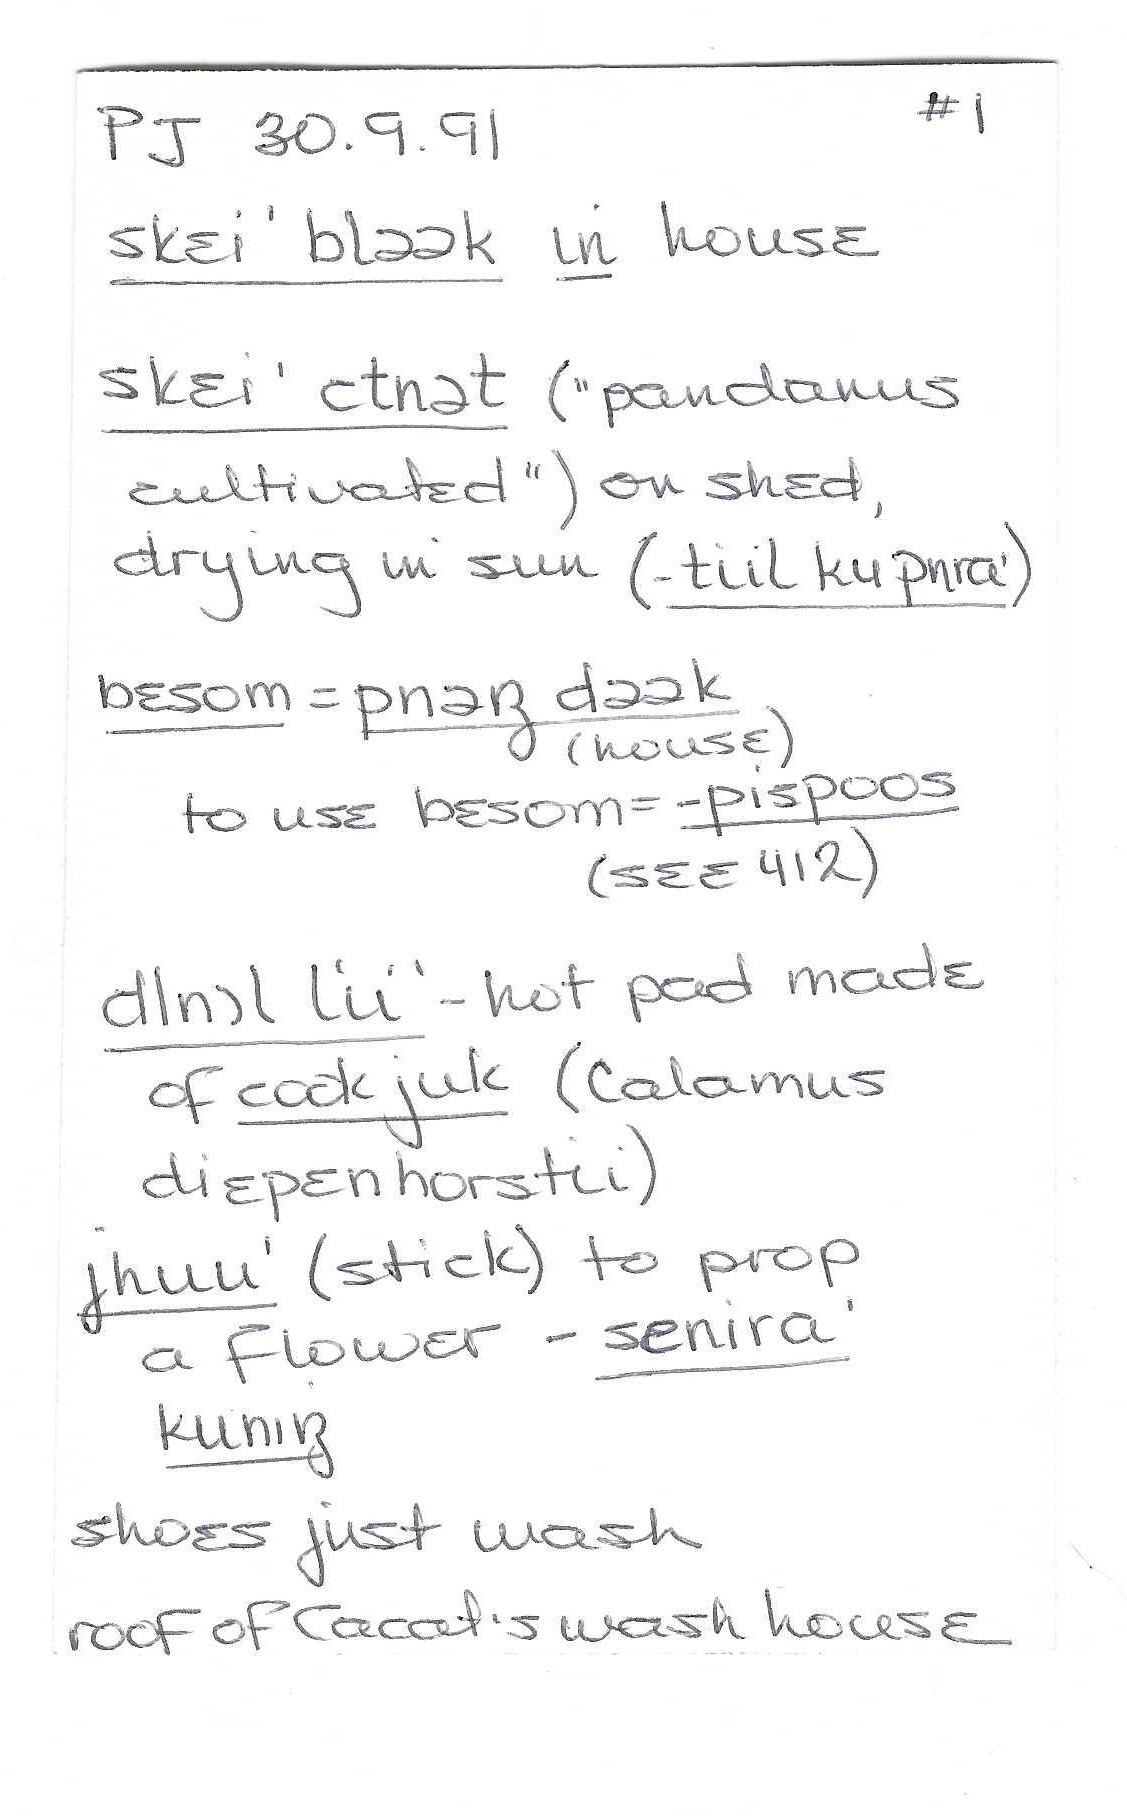 PJ 30.9.91 #1
skɛi' bləək in house
skɛi' ctnət ("pandanus
cultivated") on shed,
drying in sun (-tiil ku pnra')
besom = pnəŋ dəək
(house)
to use besom = -pispoos
(see 412)
dlnɔl lii' - hot pad made
of cɔɔk juk (Calamus
diepenhorstii)
jhuu' (stick) to prop
a flower - senira'
kuniŋ
shoes just wash
roof of Cacat's wash house